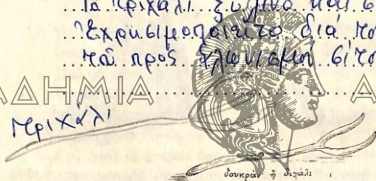 Το τριχάλι ξύλινο και σ
Ἐχρησιμοποιεῖτο διά το
τοῦ πρός ἁλωνισμόν σίτο
ΑΔΗΜΙΑ
τριχάλι
δουκράν ἤ διχάλι